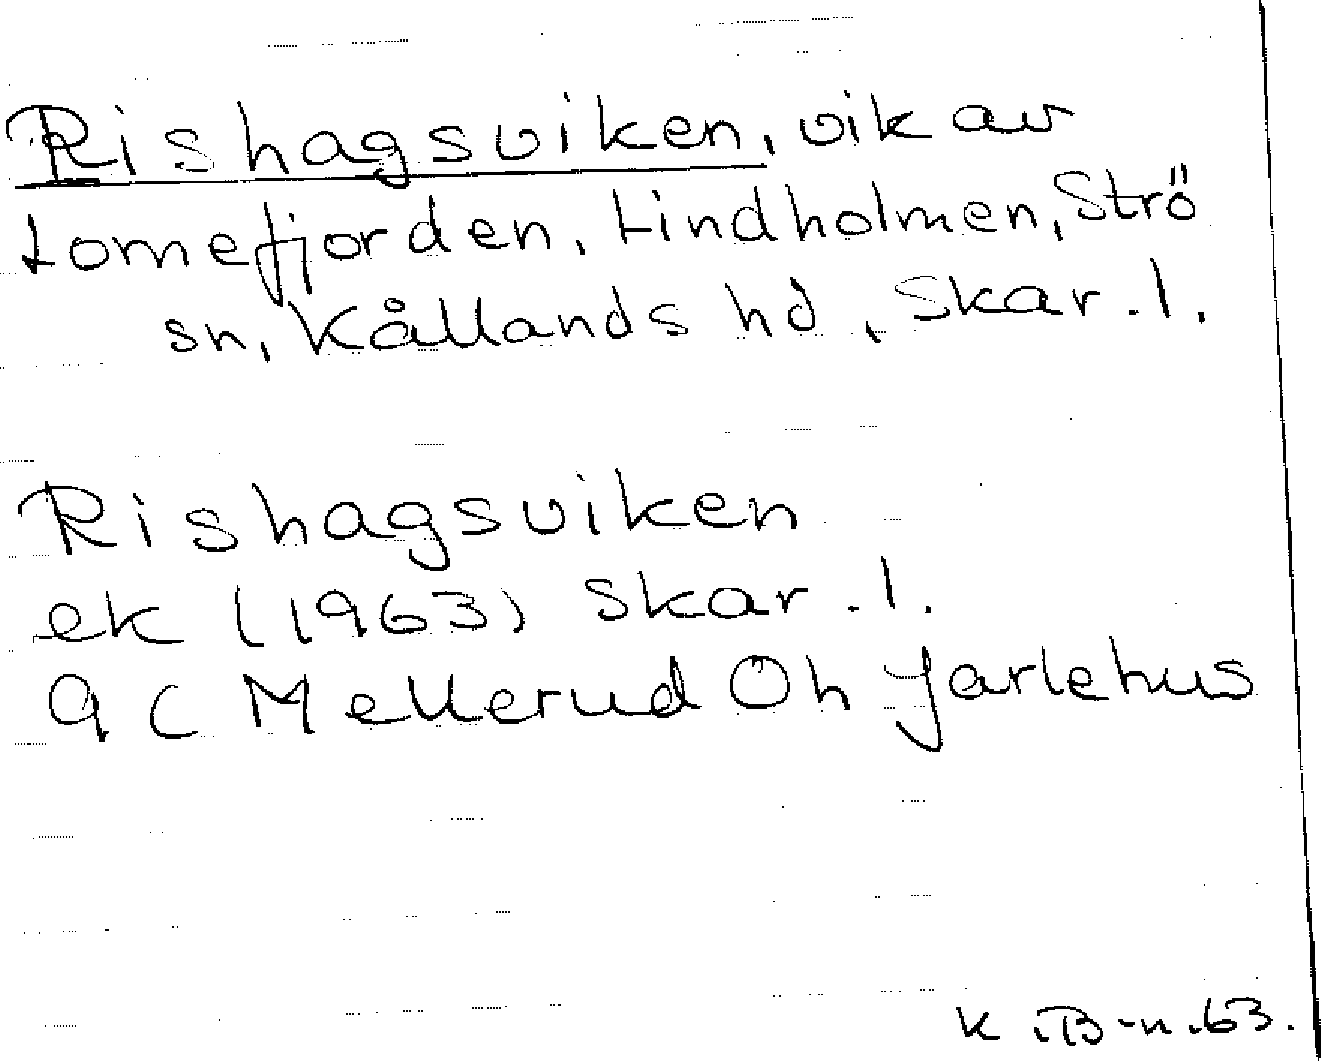 Rishagsviken, vik av
Lomefjorden, Lindholmen, Strö
sn, Kållands hd, Skar. l.
Rishagsviken
ek (1963) Skar. l.
9 C Mellerud Öh Jarlehus
K. B-n. 63.